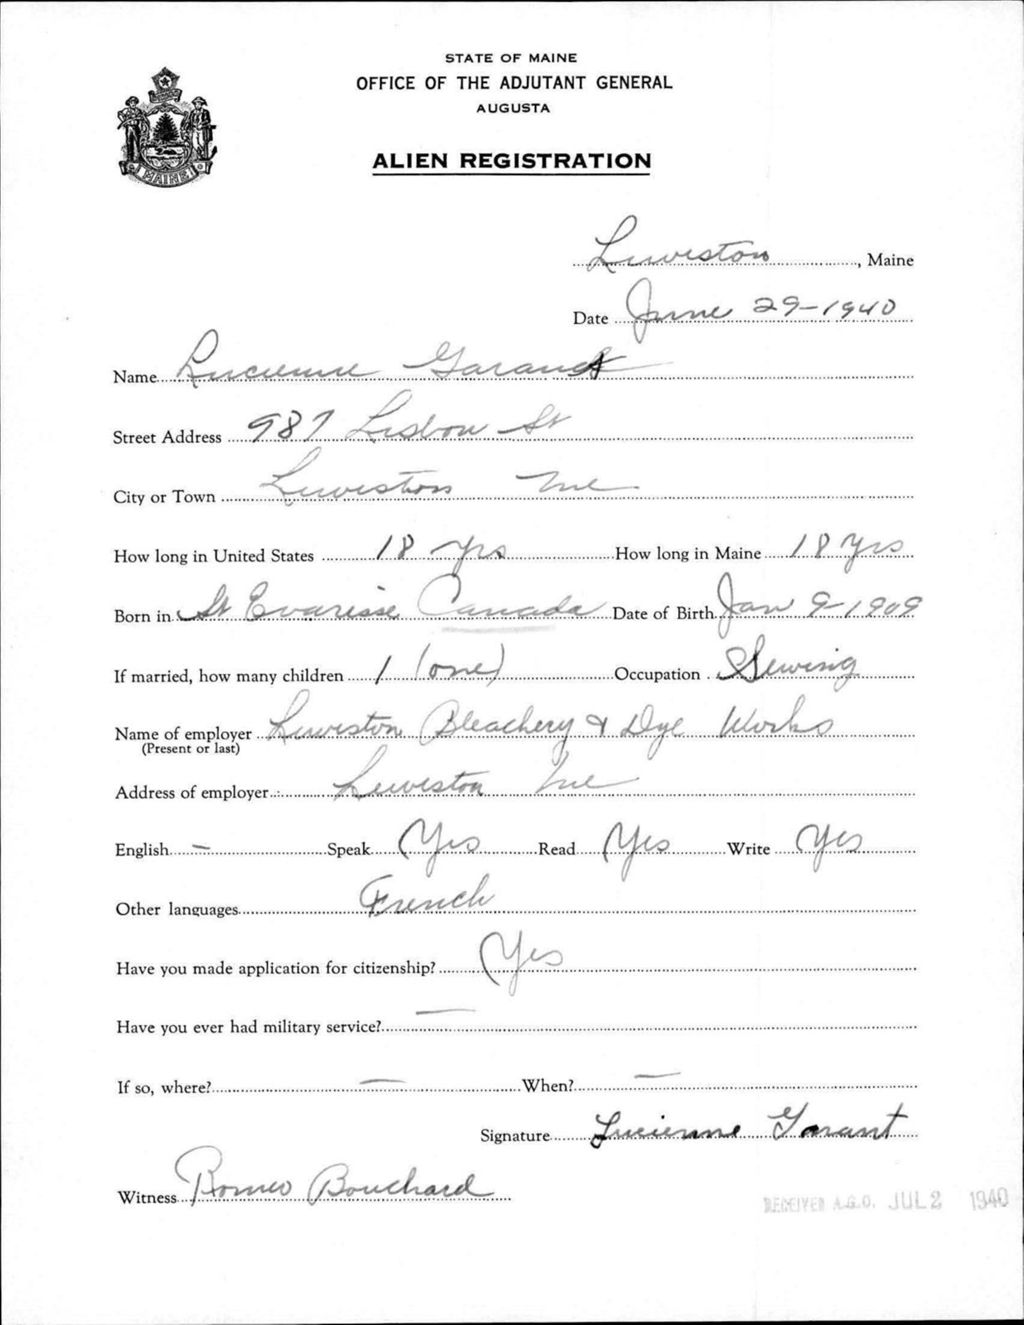 STATE OF MAINE
OFFICE OF THE ADJUTANT GENERAL
AUGUSTA
ALIEN REGISTRATION
MAINE
Lewiston, Maine
Date June 29-1940
Name Lucienne Garant
Street Address 987 Lisbon St
City or Town Lewiston Me
How long in United States 18 yrs How long in Maine 18 yrs
Born in St Evarisse Canada Date of Birth Jan 9-1909
If married, how many children 1 (one) Occupation Sewing
Name of employer Lewiston Bleachery & Dye Works
(Present or last)
Address of employer Lewiston Me
English — Speak Yes Read Yes Write Yes
Other languages French
Have you made application for citizenship? Yes
Have you ever had military service? —
If so, where? — When? —
Signature Lucienne Garant
Witness Romeo Bouchard
RECEIVED A.G.O. JUL 2 1940